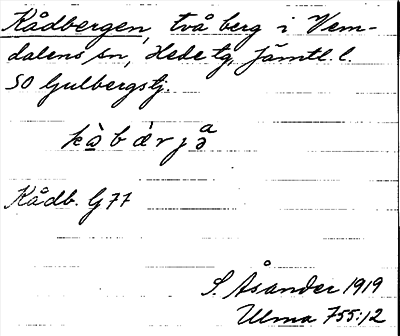 Kådbergen, två berg i Vem-
dalens sn, Hede tg, Jämtl. l.
SO Gulbergstj.
Kådb. G 77
S. Åsander 1919
Ulma 755:12